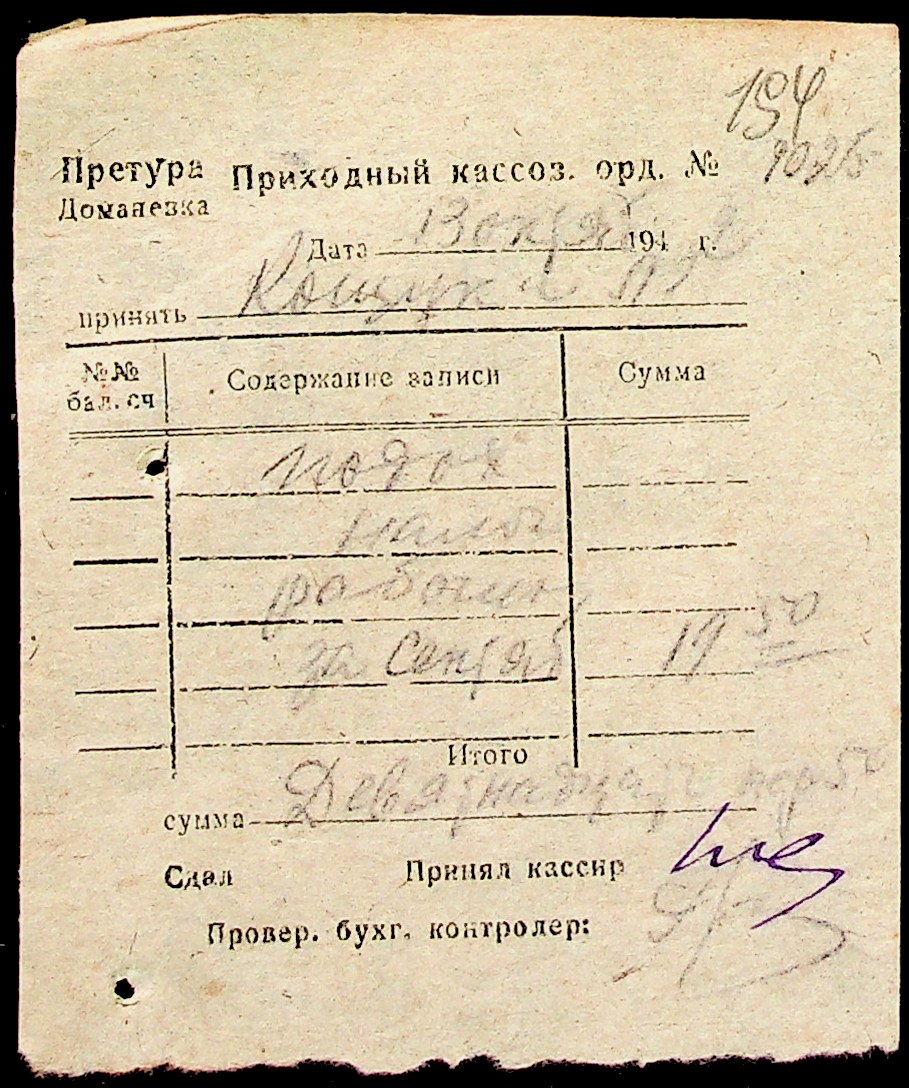 194
Претура Приходный кассов. орд. №
Доманевка
Дата 13 октяб 194 2 г.
принять Кощук
№№ бал. сч Содержание записи Сумма
подох
налог
рабочих
за сентяб 19 50
Итого
сумма Девятнадцать
Сдал Принял кассир
Провер. бухг. контролер: